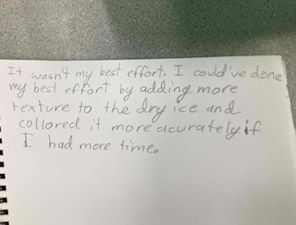 It wasn't my best effort. I could've done
my best effort by adding more
texture to the dry ice and
collored it more acurately if
I had more time.